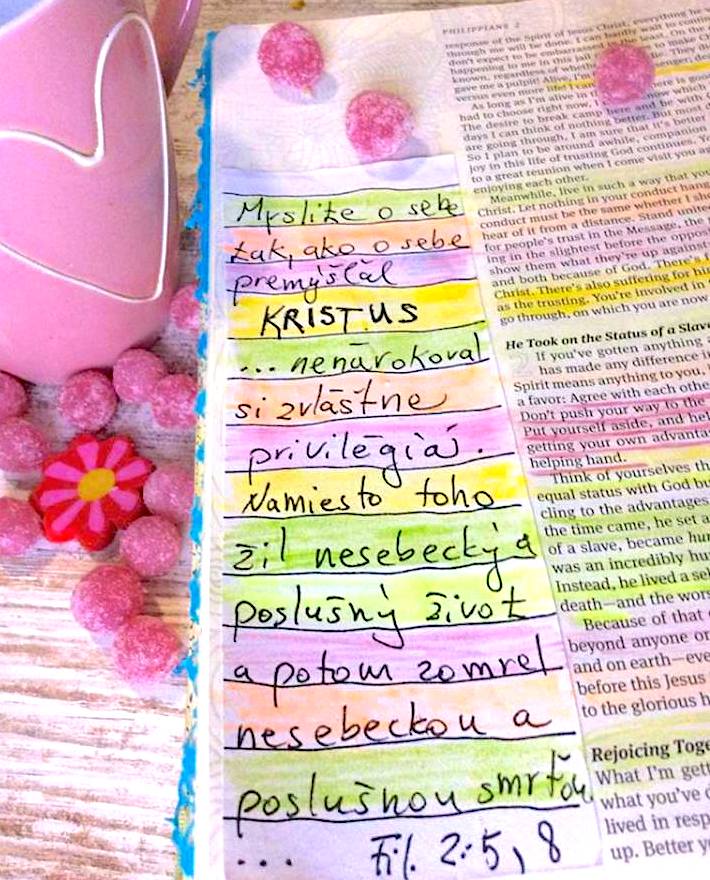 Myslite o sebe
tak, ako o sebe
premýšľal
KRISTUS
... nenárokoval
si zvláštne
privilégiá.
Namiesto toho
žil nesebecký a
poslušný život
a potom zomrel
nesebeckou a
poslušnou smrťou
... Fil. 2:5, 8
PHILIPPIANS 2
response of the Spirit of Jesus Christ, everything he
through me will be done. I can hardly wait to
don't expect to be embarrassed in the least. On the
happening to me in this jail
known, regardless of whether
gave me a pulpit! Alive, I'm
versus even more life! I can't
As long as I'm alive in
had to choose right now, I
The desire to break camp here and be with
days I can think of nothing better. But
are going through, I am sure that it's better
So I plan to be around awhile, companion
joy in this life of trusting God continues. You
to a great reunion when I come visit you
enjoying each other.
Meanwhile, live in such a way that you
Christ. Let nothing in your conduct hang
conduct must be the same whether I
hear of it from a distance. Stand
for people's trust in the Message, the
ing in the slightest before the oppos
show them what they're up against
and both because of God. There's
Christ. There's also suffering for him
as the trusting. You're involved in
go through, on which you are now
He Took on the Status of a Slave
If you've gotten anything
has made any difference in
Spirit means anything to you,
a favor: Agree with each othe
Don't push your way to the
Put yourself aside, and hel
getting your own advanta
helping hand.
Think of yourselves th
equal status with God bu
cling to the advantages
the time came, he set a
of a slave, became hu
was an incredibly hu
Instead, he lived a sel
death—and the wors
Because of that
beyond anyone or
and on earth—eve
before this Jesus
to the glorious h
Rejoicing Toge
What I'm gett
what you've d
lived in resp
up. Better y